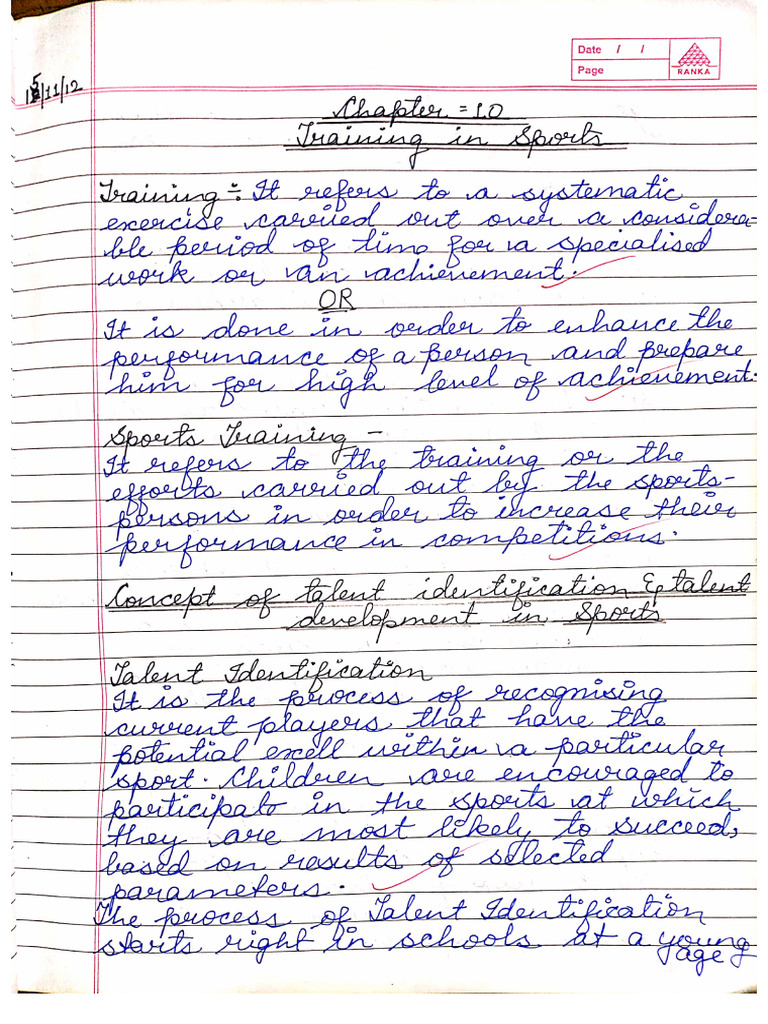 Date / /
Page
RANKA
15/11/12
Chapter = 10
Training in Sports
Training ÷ It refers to a systematic
exercise carried out over a considera=
ble period of time for a specialised
work or an achievement.
OR
It is done in order to enhance the
performance of a person and prepare
him for high level of achievement.
Sports Training -
It refers to the training or the
efforts carried out by the sports-
persons in order to increase their
performance in competitions.
Concept of talent identification & talent
development in Sports
Talent Identification
It is the process of recognising
current players that have the
potential excell within a particular
sport. Children are encouraged to
participate in the sports at which
they are most likely to succeed,
based on results of selected
parameters.
The process of Talent Identification
starts right in schools at a young
age